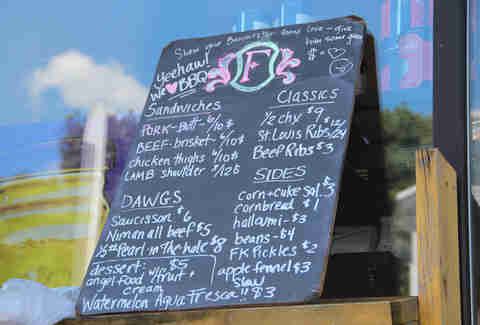 Show your Banquetter some love - give
him some guac
$ + ♡
Yeehaw!
We ♥ BBQ
F
Sandwiches
PORK-Butt-6/10$
BEEF-brisket-6/10$
chicken thighs 6/10$
LAMB shoulder 7/12$
DAWGS
Saucisson $6
Niman all beef $5
1/2 st Pearl-in the hole $8
dessert: $5
angel food w/fruit +
cream
Watermelon Agua Fresca!! $3
CLASSICS
1/2 chx $9
St. Louis Ribs $12/24
Beef Ribs $3
SIDES
corn+cuke sal. $3
cornbread $1
halloumi-$3
beans-$4
FK Pickles $2
apple fennel $3
Slaw